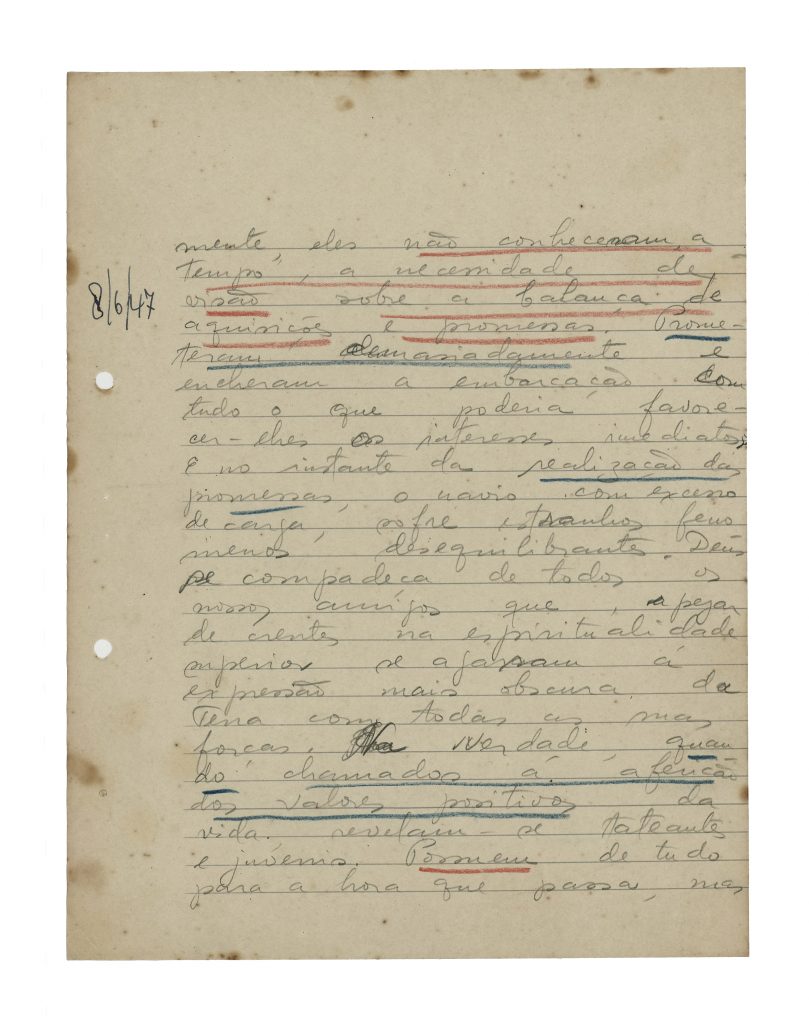 8/6/47
mente, eles não conheceram, a
tempo, a necessidade de
visão sobre a balança de
aquisições e promessas. Prome-
teram demasiadamente e
encheram a embarcação com
tudo o que poderia favore-
cer-lhes os interesses imediatos,
e no instante da realização das
promessas, o navio com excesso
de carga, sofre estranhos feno
menos desequilibrantes. Deus
se compadeça de todos os
nossos amigos que, apezar
de crentes na espiritualidade
superior se agarram á
expressão mais obscura da
Terra com todas as suas
forças. Na verdade, quan
do chamados á aferição
dos valores positivos da
vida. revelam-se tateantes
e juvenis. Possuem de tudo
para a hora que passa, mas